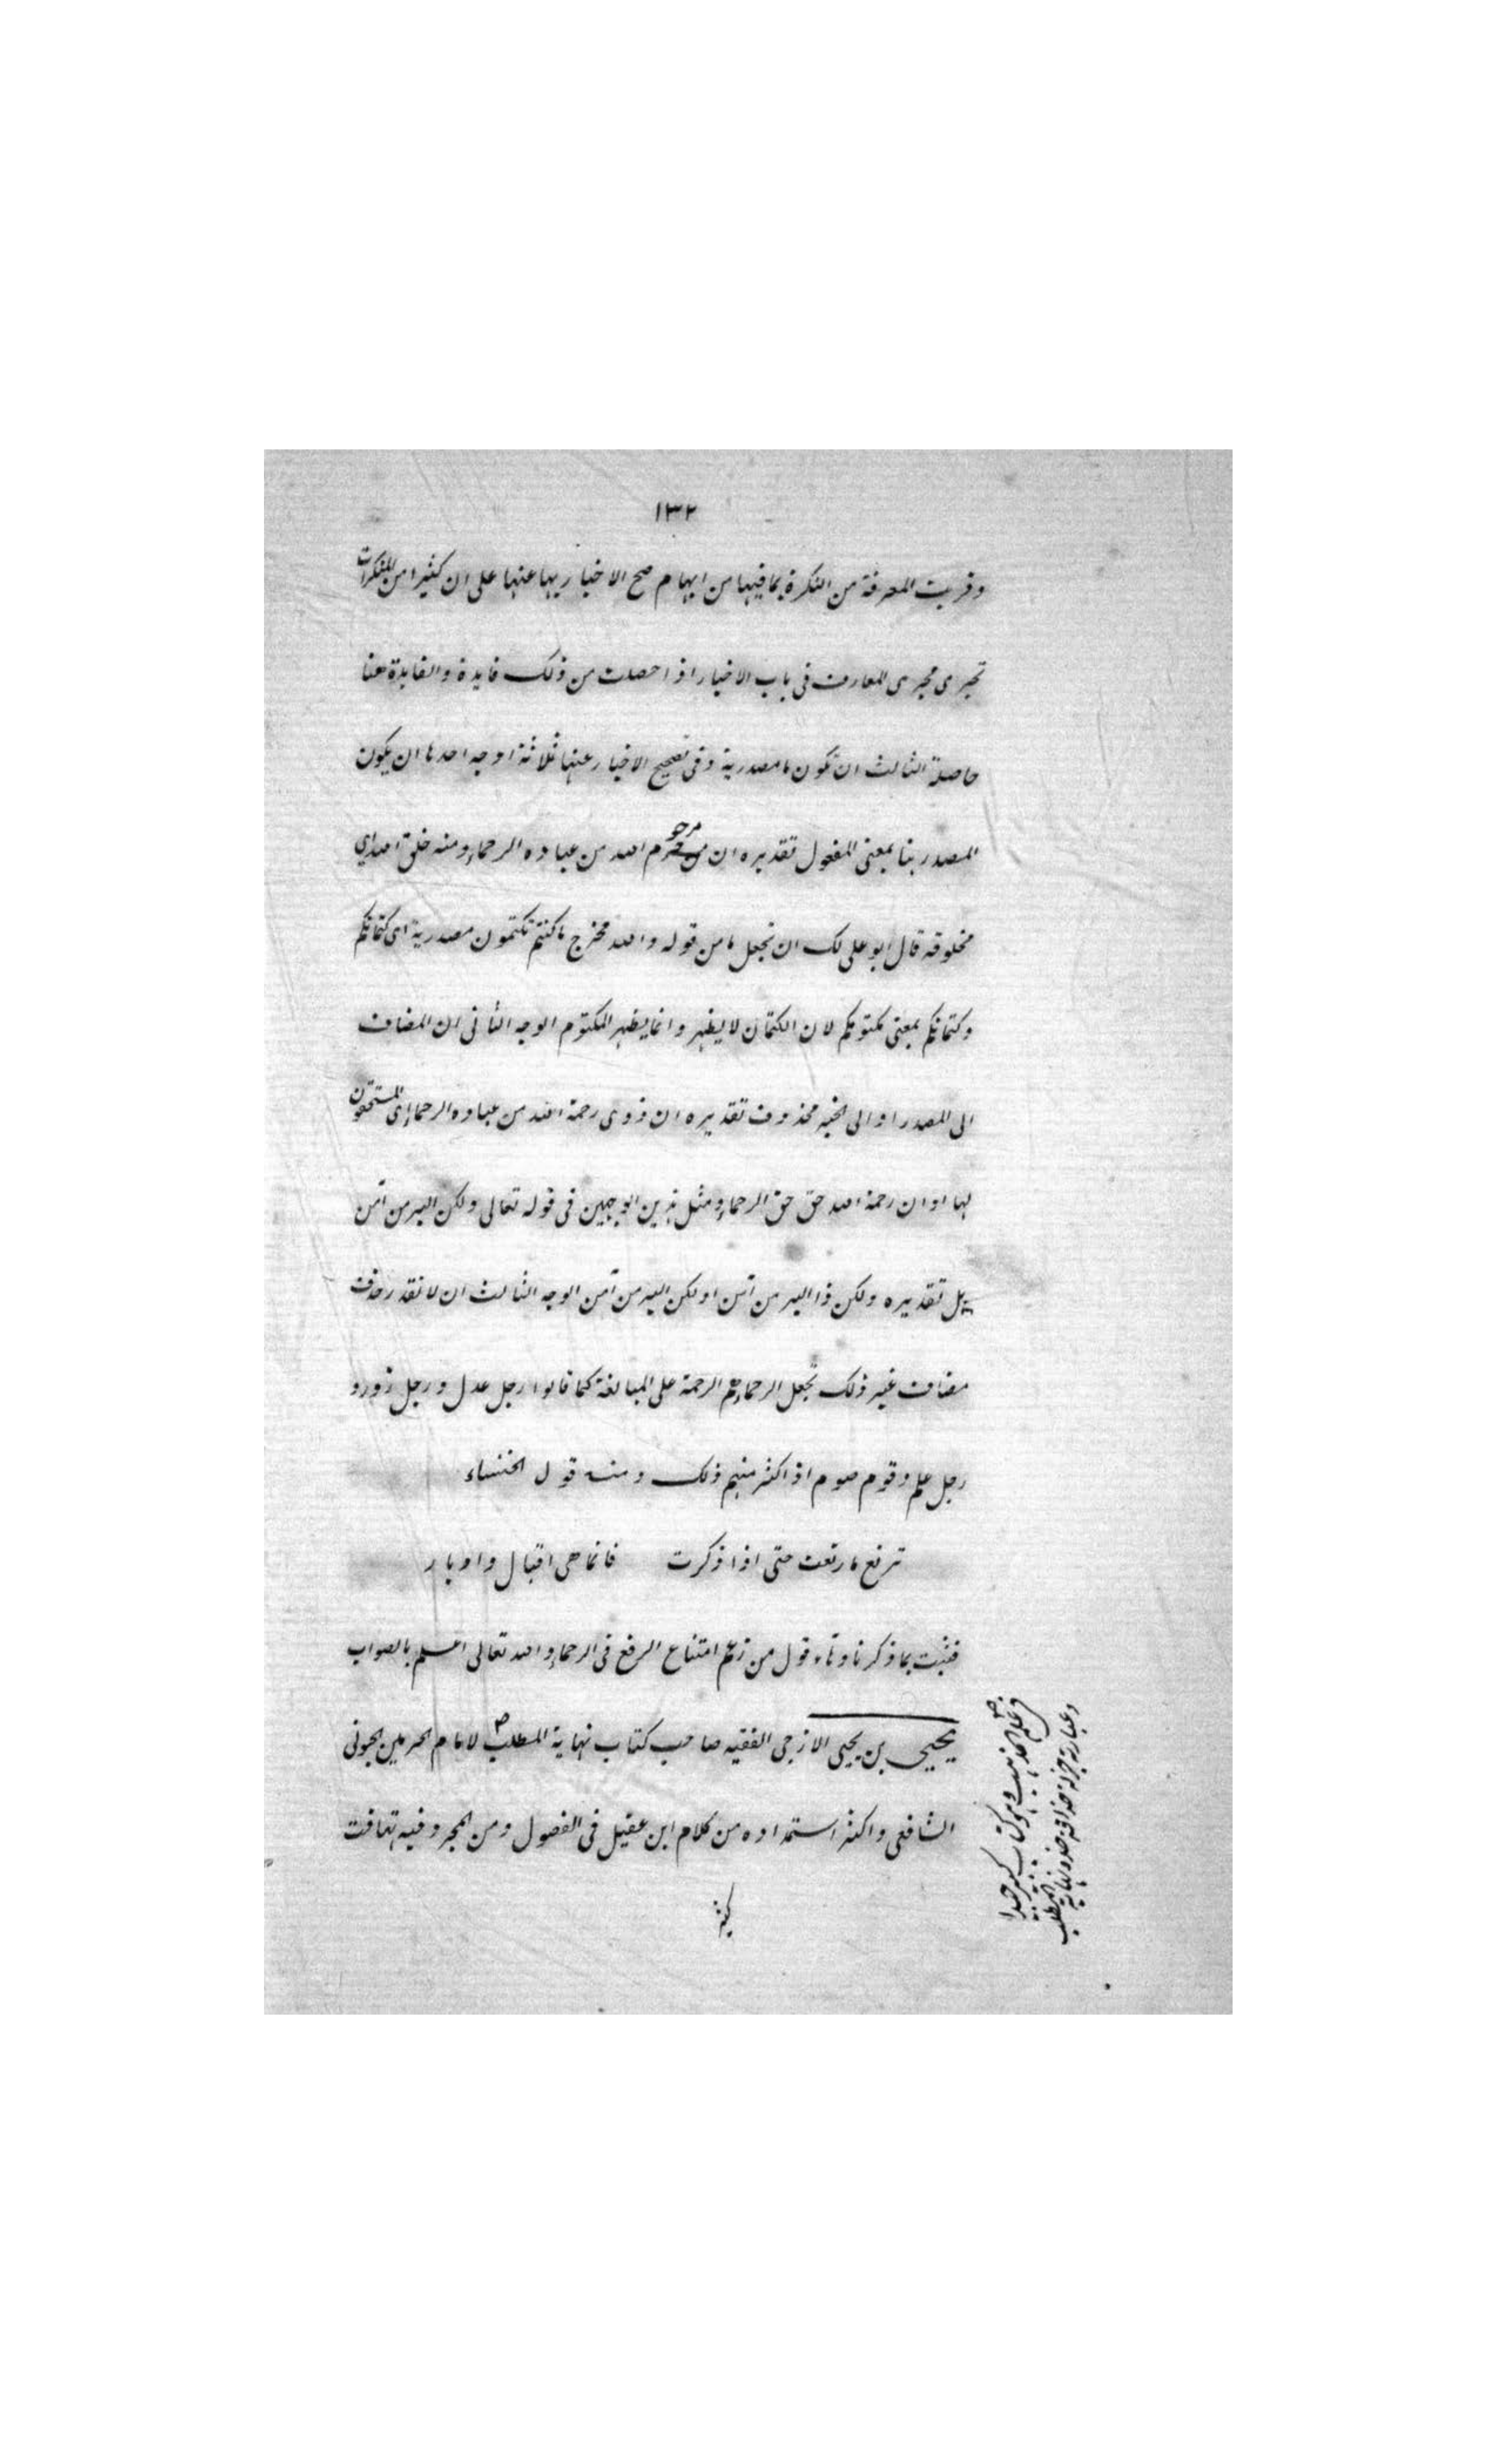 ١٣٢
وقربت المعرفة من النكرة بما فيها من ابهام صح الاخبار بها عنها على ان كثيرا من المنكرات
تجرى مجرى المعارف فى باب الاخبار اذا حصلت من ذلك فايدة والفايدة هنا
حاصلة الثالث ان تكون ما مصدرية وفى تصحيح الاخبار عنها ثلاثة اوجه احدها ان يكون
المصدر هنا بمعنى المفعول تقديره ان مرحوم الله من عباده الرحماء ومنه خلق الله اي
مخلوقه قال ابو على لك ان تجعل ما من قوله والله مخرج ما كنتم تكتمون مصدرية اى كتمانكم
وكتمانكم بمعنى مكتومكم لان الكتمان لا يظهر وانما يظهر المكتوم الوجه الثانى ان المضاف
الى المصدر او الى الخبر محذوف تقديره ان ذوى رحمة الله من عباده الرحماء اى المستحقون
لها او ان رحمة الله حق حق الرحماء ومثل هذين الوجهين فى قوله تعالى ولكن البر من آمن
هل تقديره ولكن ذا البر من آمن او لكن البر من آمن الوجه الثالث ان لا نقدر حذف
مضاف غير ذلك تجعل الرحماء هم الرحمة على المبالغة كما قالوا رجل عدل ورجل زور و
رجل علم وقوم صوم اذا كثر منهم ذلك ومنه قول الخنساء
ترتع ما رتعت حتى اذا ذكرت فانما هى اقبال وادبار
فثبت بما ذكرناه قول من زعم امتناع الرفع فى الرحماء والله تعالى اعلم بالصواب
يحيى بن يحيى الازجى الفقيه صاحب كتاب نهاية المطلب لامام الحرمين الجونى
الشافعى واكثر استمداده من كلام ابن عقيل فى الفصول ومن المجرد وفيه تهافت
كثير
فى علم المذهب وهو كتاب كبير جدا
وعبارته جزلة حذا فيه حذو نهاية المطلب